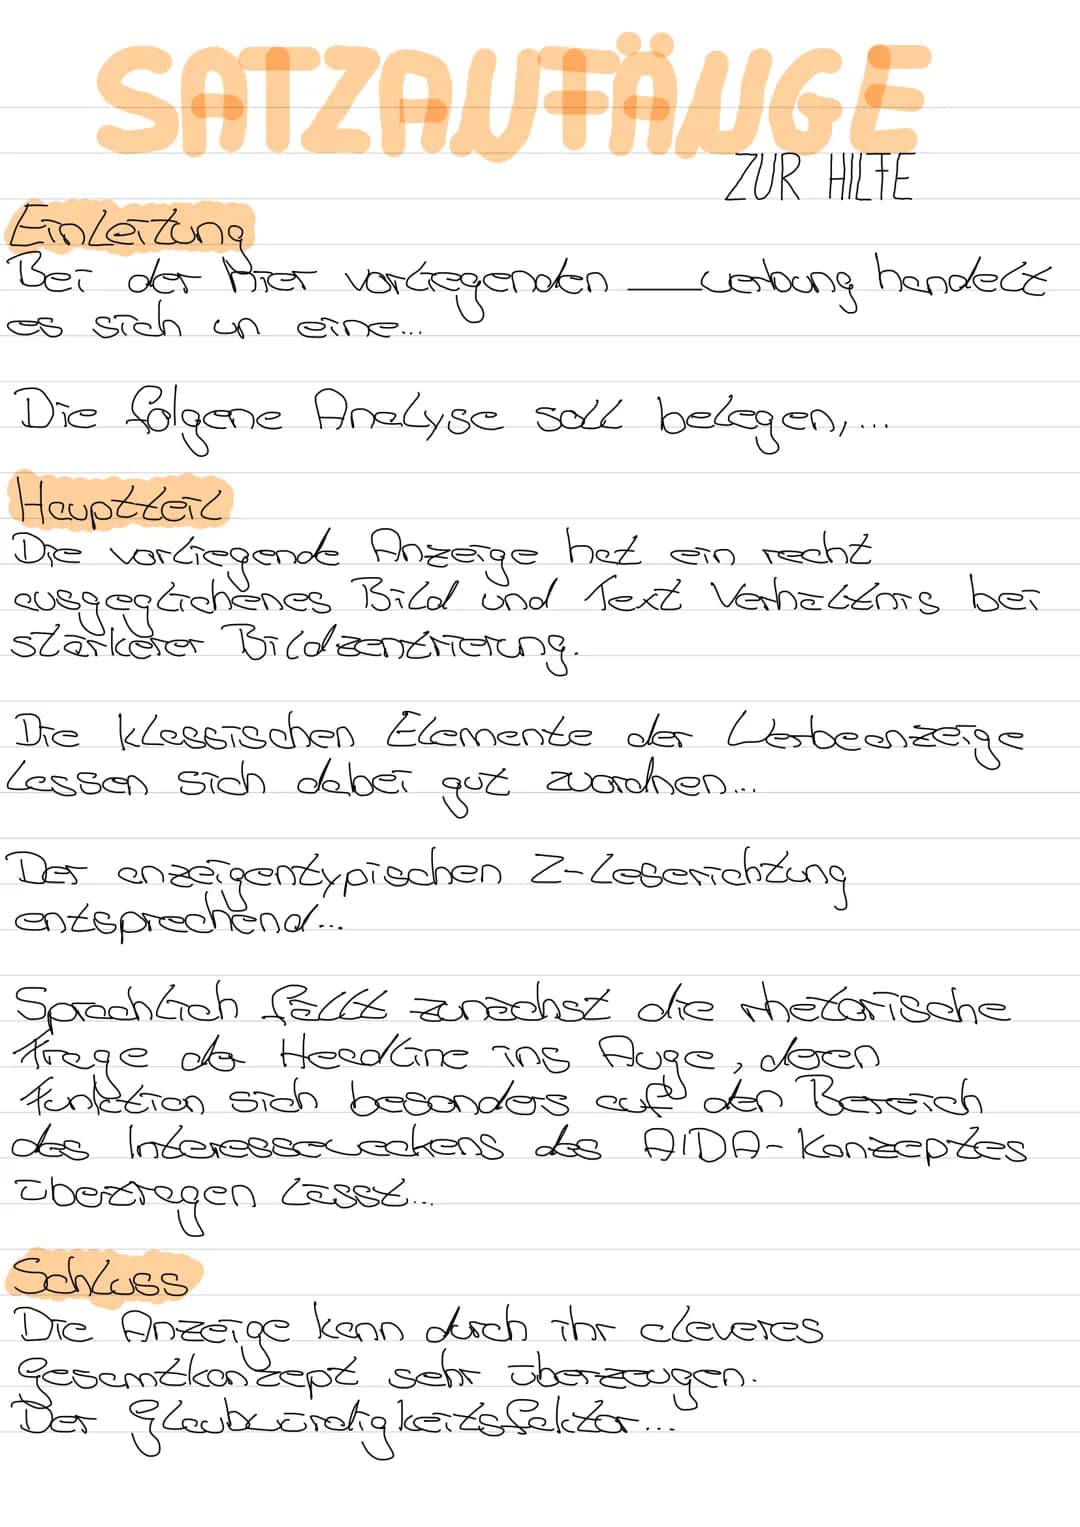 SATZANFÄNGE
ZUR HILFE
Einleitung
Bei der hier vorliegenden ___werbung handelt
es sich un eine...
Die folgene Analyse soll belegen,...
Hauptteil
Die vorliegende Anzeige hat ein recht
ausgeglichenes Bild und Text Verhältnis bei
stärkerer Bildzentrierung.
Die klassischen Elemente der Werbeanzeige
lassen sich dabei gut zuordnen...
Der anzeigentypischen Z-Leserichtung
entsprechend...
Sprachlich fällt zunächst die rhetorische
Frage der Headline ins Auge, deren
Funktion sich besonders auf den Bereich
des Interesseweckens des AIDA-Konzeptes
übertragen lässt...
Schluss
Die Anzeige kann durch ihr cleveres
Gesamtkonzept sehr überzeugen.
Der Glaubwürdigkeitsfaktor...